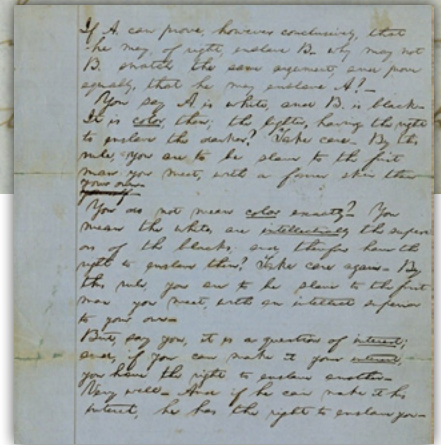 If A. can prove, however conclusively, that
he may, of right, enslave B. why may not
B. snatch the same argument, and prove
equally, that he may enslave A?—
You say A. is white, and B. is black—
It is color, then; the lighter, having the right
to enslave the darker? Take care— By this
rule, you are to be slave to the first
man you meet, with a fairer skin than
your own—
You do not mean color exactly?— You
mean the whites are intellectually the superi-
ors of the blacks, and, therefore have the
right to enslave them? Take care again— By
this rule, you are to be slave to the first
man you meet, with an intellect superior
to your own—
But, say you, it is a question of interest;
and, if you can make it your interest,
you have the right to enslave another—
Very well— And if he can make it his
interest, he has the right to enslave you—